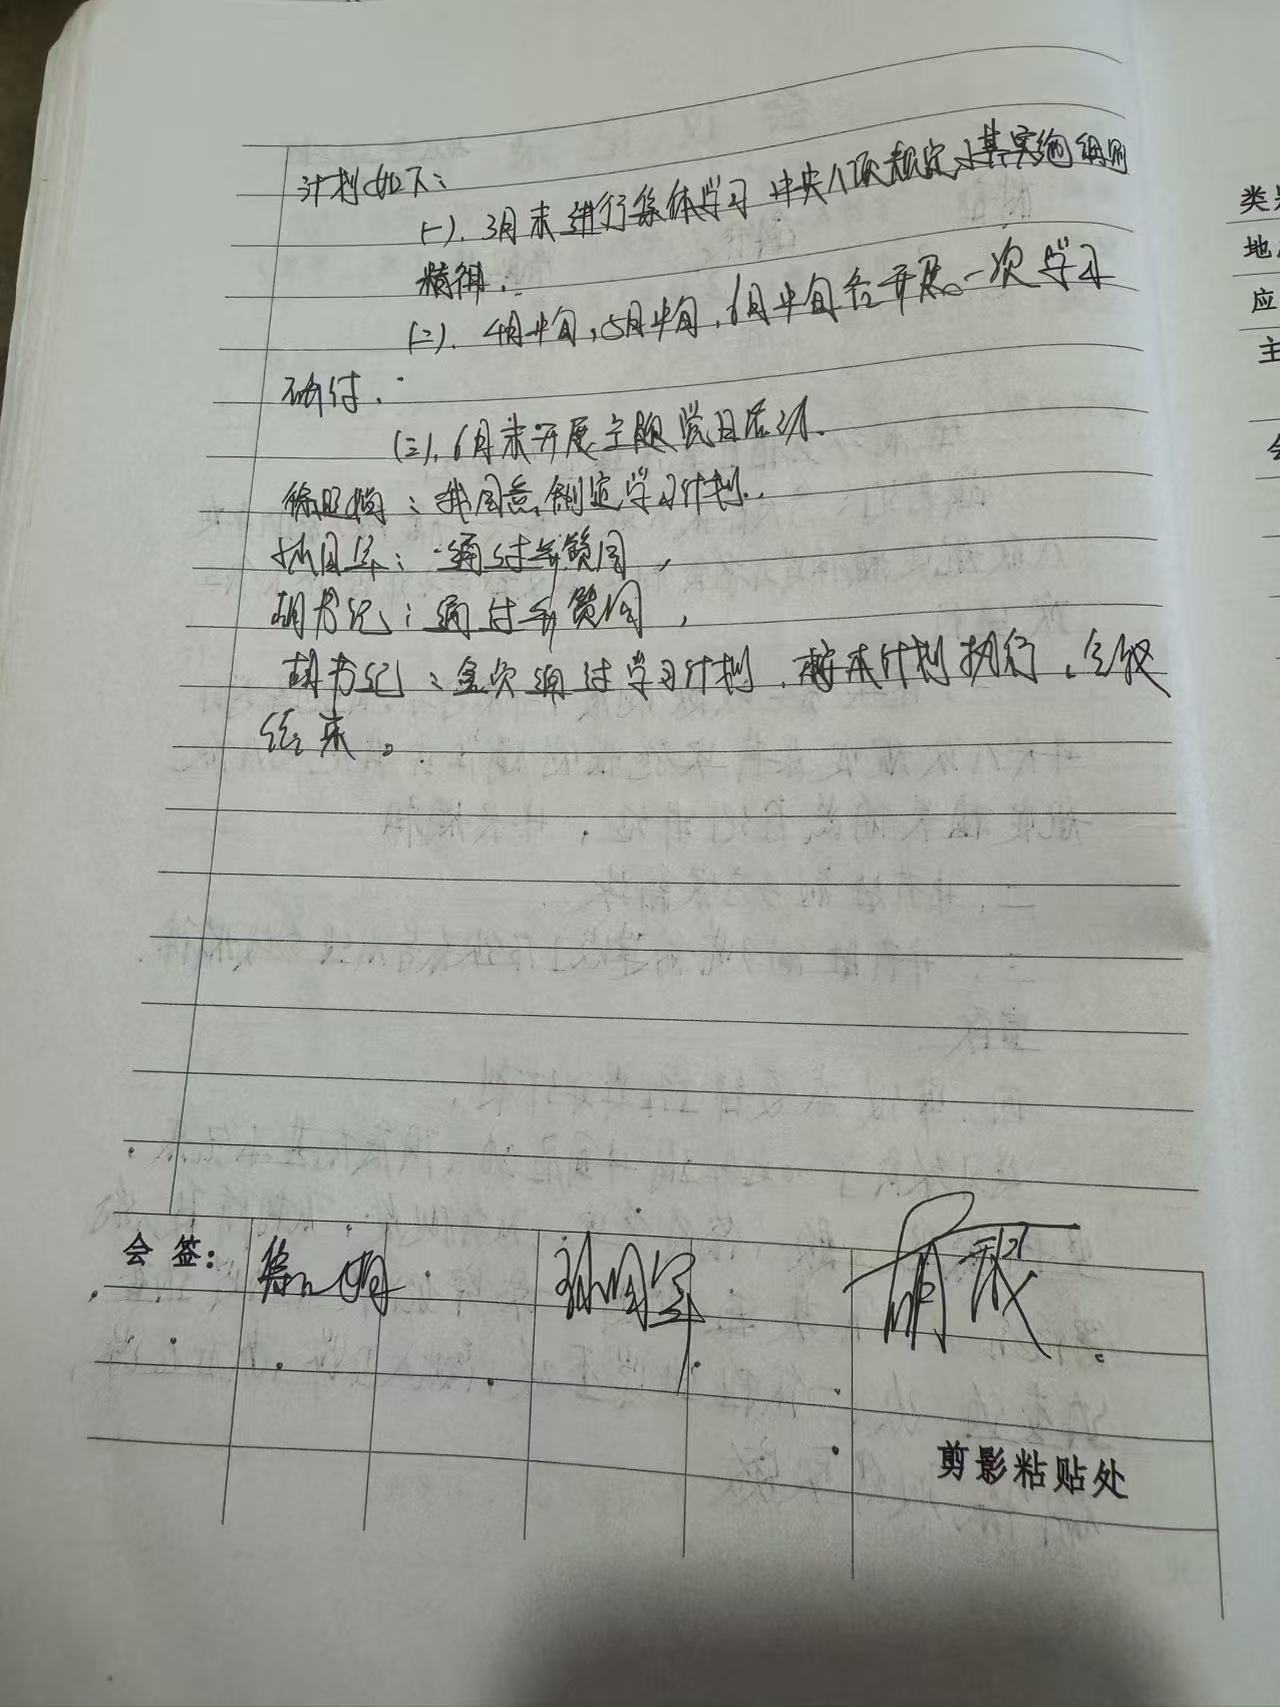 计划如下:
(一).3月末进行集体学习中央八项规定及其实施细则
精神.
(二).4月中旬,5月中旬,6月中旬各开展一次学习
研讨.
(三).6月末开展主题党日活动.
:我同意制定学习计划.
孙国军:通过并赞同,
胡书记:通过并赞同,
胡书记:全票通过学习计划.按本计划执行.会议
结束。
会 签: 孙国军
剪影粘贴处
类
地
应
主